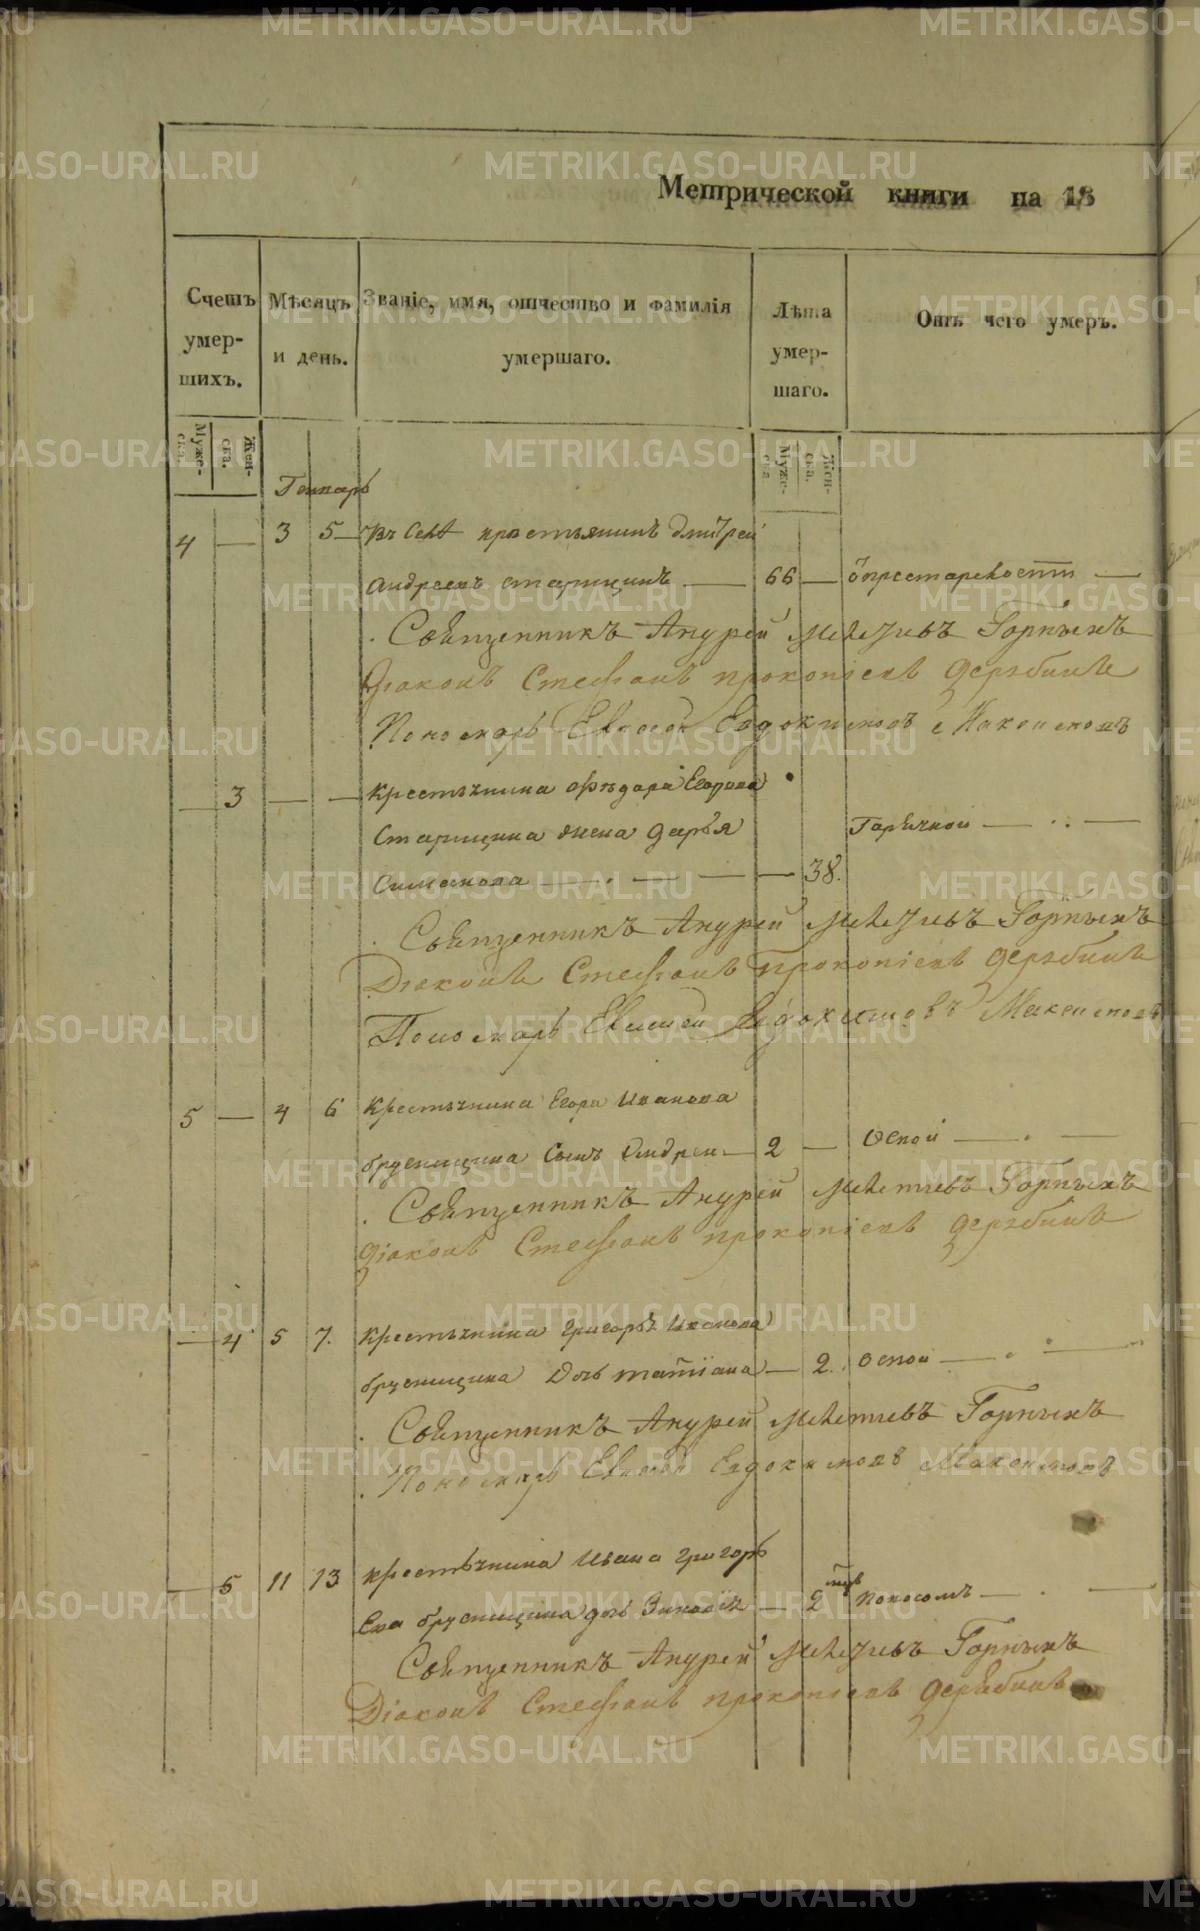 Метрической книги на 18
Счетъ умер-шихъ.
Мѣсяцъ и день.
Званіе, имя, отчество и фамилія умершаго.
Лѣта умер-шаго.
Отъ чего умеръ.
Муже-ска.
Жен-ска.
Муже-ска.
Жен-ска.
Генварь
4 — 3 5 — Въ Селѣ крестьянинъ Дмитрей
Андреевъ Старицинъ — 66 —
Священникъ Андрей Мелетіевъ Горныхъ
Діаконъ Стефанъ Прокопіевъ Дерябинъ
Пономарь Евсевей Евдокимовъ Максимовъ
— 3 — — Крестьянина Федора Егорова
Старицина жена Дарья Горячкой —
Симонова — 38.
Священникъ Андрей Мелетіевъ Горныхъ
Діаконъ Стефанъ Прокопіевъ Дерябинъ
Пономарь Евсевей Евдокимовъ Максимовъ
5 — 4 6 Крестьянина Егора Иванова
брусницина Сынъ Андрей — 2 — Оспой —
Священникъ Андрей Мелетіевъ Горныхъ
Діаконъ Стефанъ Прокопіевъ Дерябинъ
— 4 5 7. Крестьянина Григорья Иванова
брусницина Дочь татіана — 2. Оспой —
Священникъ Андрей Мелетіевъ Горныхъ
Пономарь Евсевей Евдокимовъ Максимовъ
— 5 11 13 крестьянина Ивана Григорь
Ева брусницина дочь — 2 Поносомъ —
Священникъ Андрей Мелетіевъ Горныхъ
Діаконъ Стефанъ Прокопіевъ Дерябинъ
METRIKI.GASO-URAL.RU